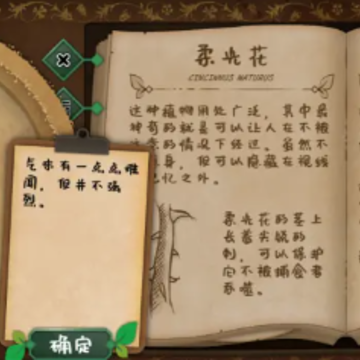 柔光花
CINCINNUS NATURUS
这种植物用处广泛，其中最
神奇的就是可以让人在不被
意的情况下经过。虽然不
身，但可以隐藏在视线
记忆之外。
柔光花的茎上
长着尖锐的
刺，可以保护
它不被捕食者
吞噬。
气味有一点点难
闻，但并不强
烈。
确定